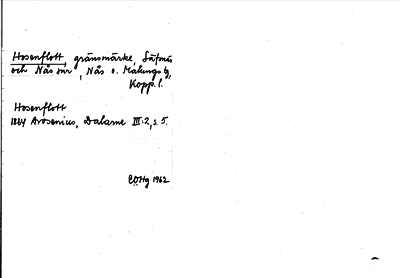 Hosenflott, gränsmärke, Säfsnäs
och Nås snr, Nås o. Malungs tg,
Kopp. l.
Hosenflott
1864 Arosenius, Dalarne III:2, s. 5.
CÖHg 1962